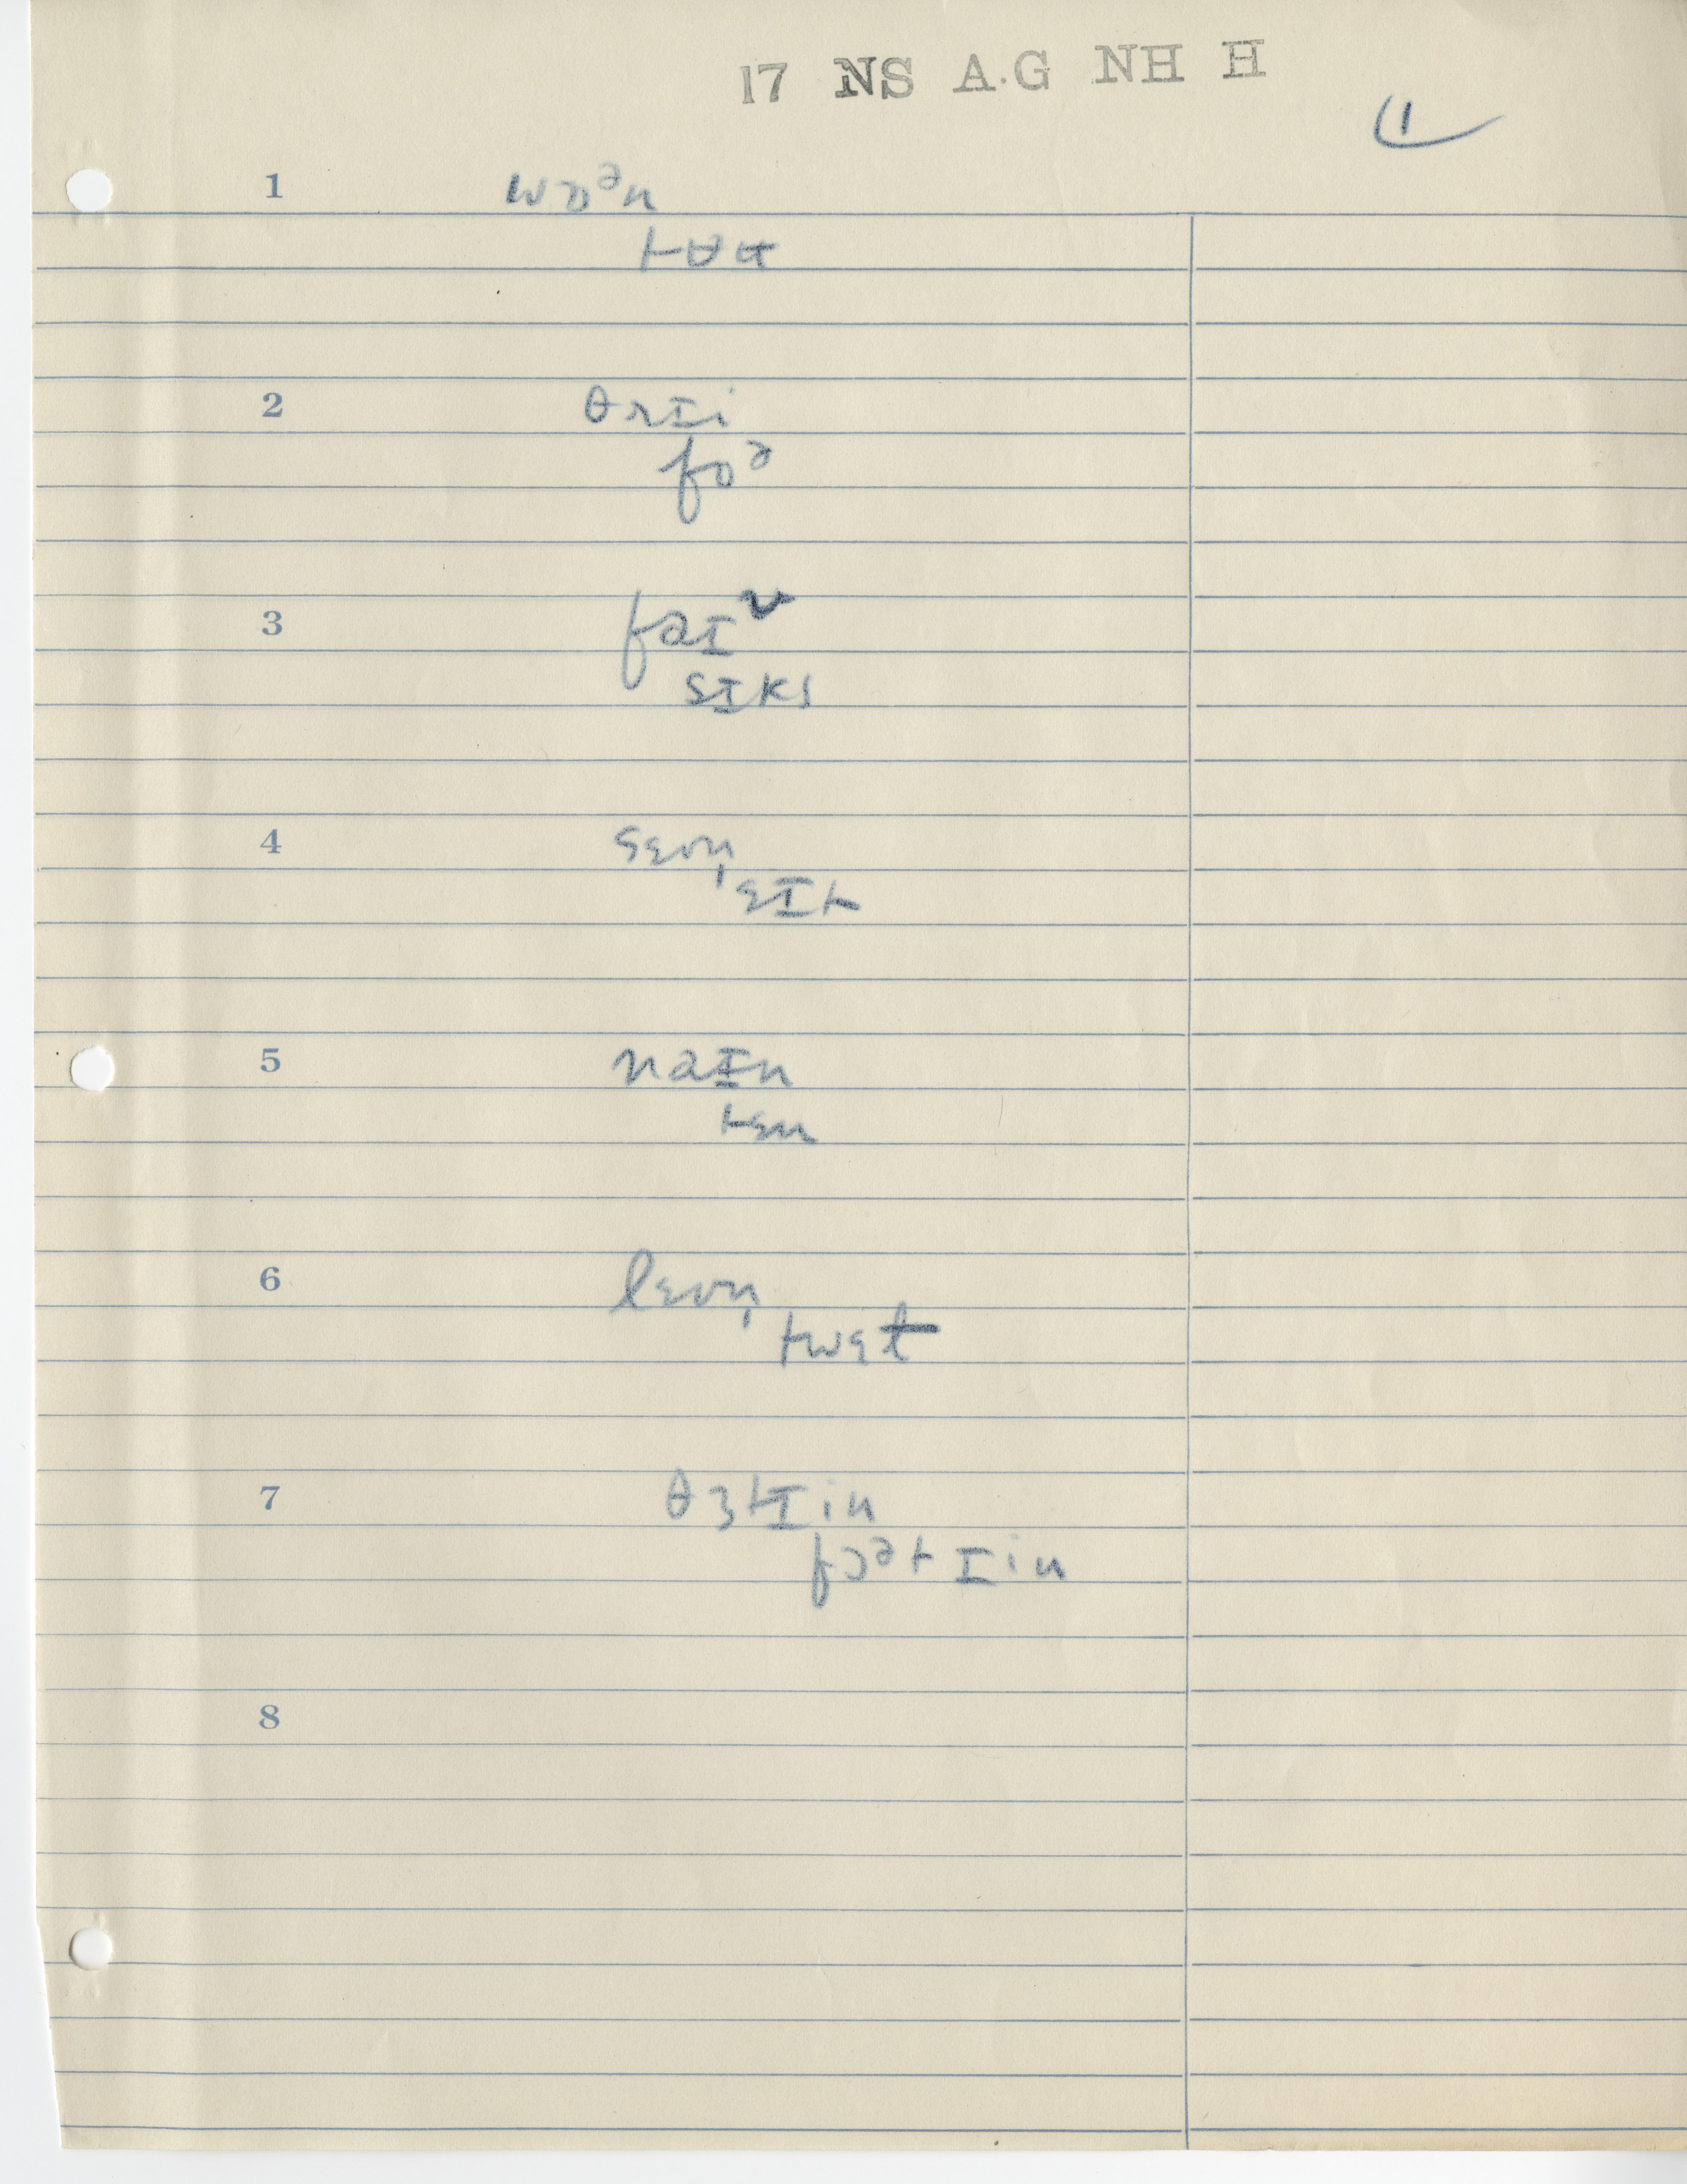 17 NS A.G NH H
1
1 wɒᵊn
tʉʉ
2 θrɪi
foᵊ
3 faɪv
sɪks
4 sɛvn̩
ɛɪt
5 naɪn
tɛn
6 lɛvn̩
7 θɜtɪin
fɔᵊtɪin
8